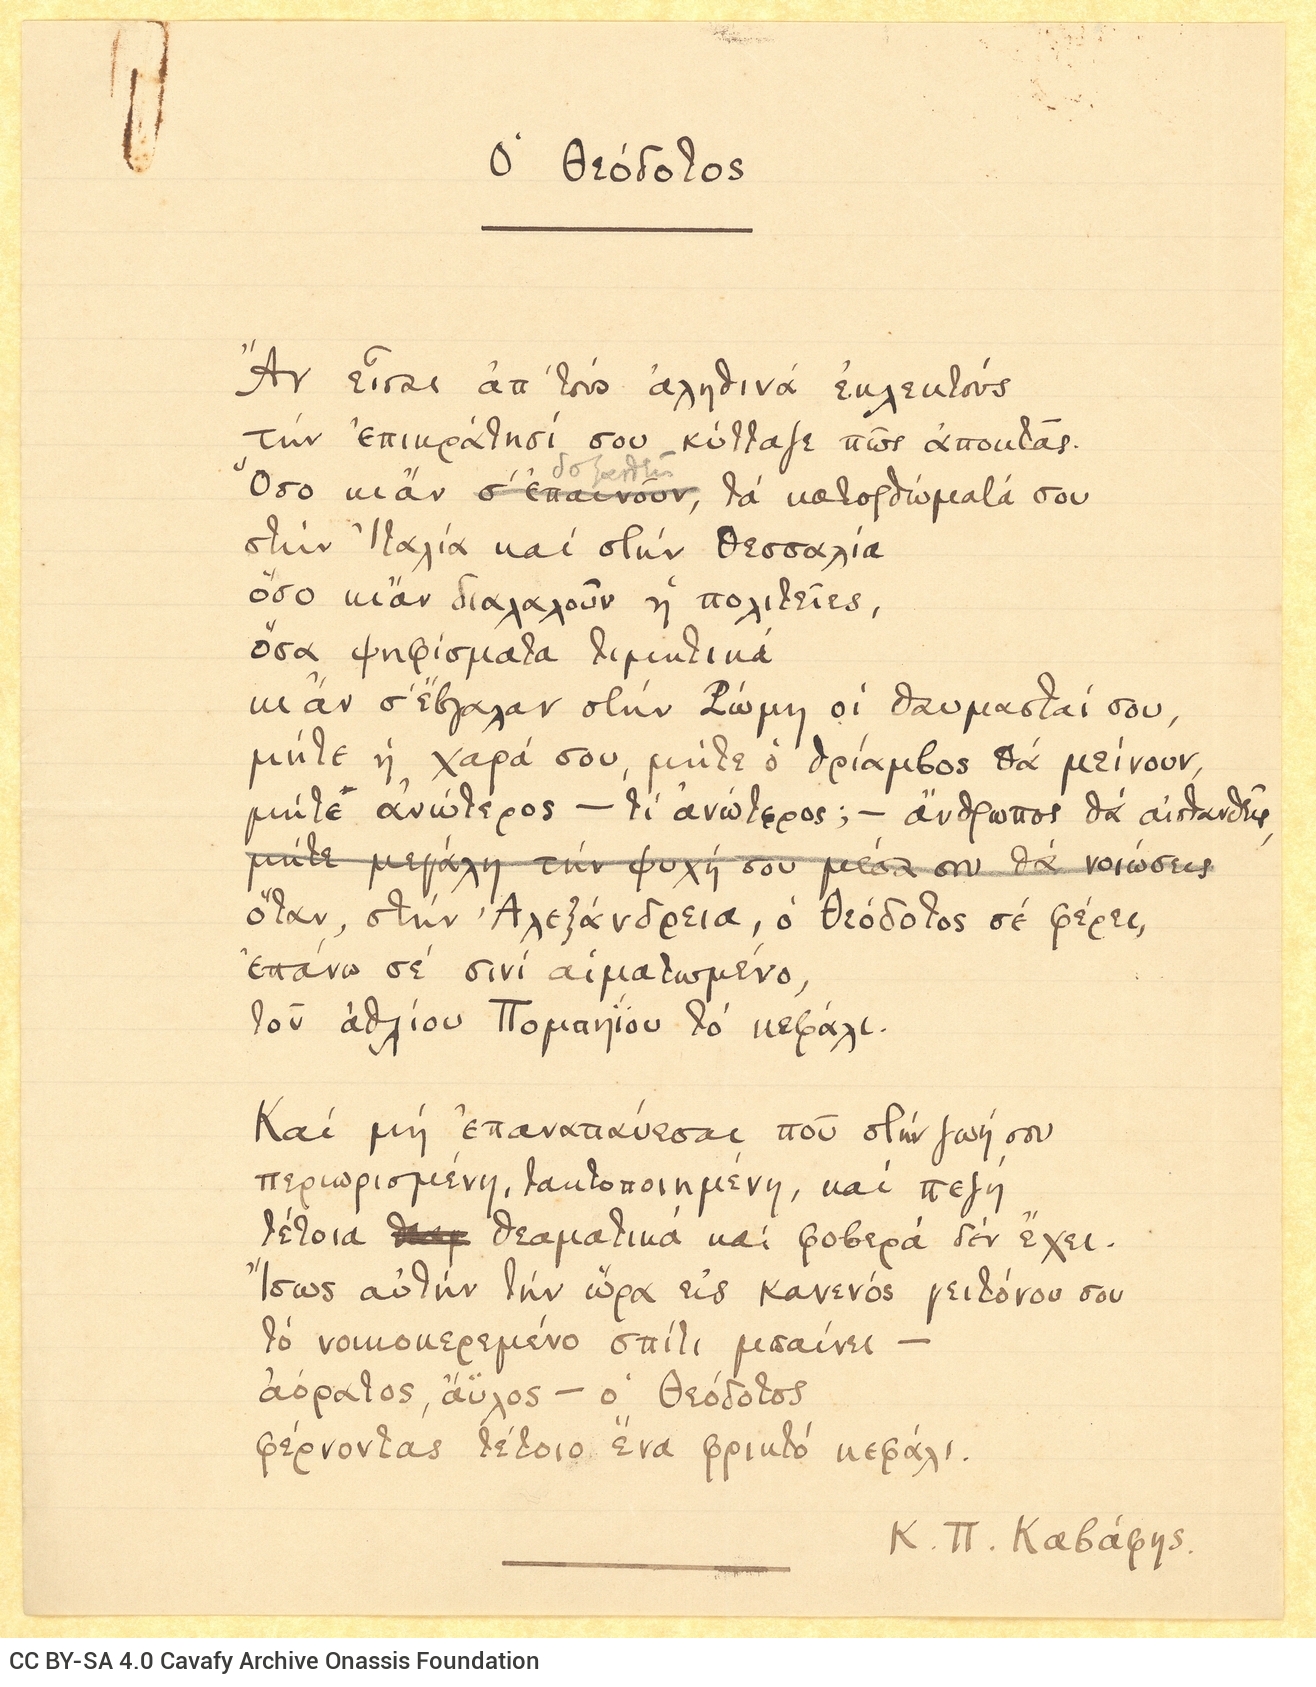 Ὁ Θεόδοτος
Ἂν εἶσαι ἀπ' τοὺς ἀληθινά ἐκλεκτούς
τήν ἐπικράτησί σου κύτταζε πῶς ἀποκτᾶς.
δοξασθῇς
Ὅσο κι ἂν σ' ἐπαινοῦν, τά κατορθώματά σου
στήν Ἰταλία καί στήν Θεσσαλία
ὅσο κι ἂν διαλαλοῦν ᾑ πολιτεῖες,
ὅσα ψηφίσματα τιμητικά
κι ἂν σ' ἔβγαλαν στήν Ρώμη οἱ θαυμασταί σου,
μήτε ἡ χαρά σου, μήτε ὁ θρίαμβος θά μείνουν,
μήτε ἀνώτερος — τί ἀνώτερος; — ἄνθρωπος θά αἰσθανθῇς,
μήτε μεγάλη τήν ψυχή σου μέσα σου θά νοιώσεις
ὅταν, στήν Ἀλεξάνδρεια, ὁ Θεόδοτος σέ φέρει,
ἐπάνω σέ σινί αἱματωμένο,
τοῦ ἀθλίου Πομπηΐου τό κεφάλι.
Καί μή ἐπαναπαύεσαι ποῦ στήν ζωή σου
περιωρισμένη, τακτοποιημένη, καί πεζή,
τέτοια θεαματικά καί φοβερά δέν ἔχει.
Ἴσως αὐτήν τήν ὥρα εἰς κανενός γειτόνου σου
τό νοικοκερεμένο σπίτι μπαίνει —
ἀόρατος, ἄϋλος — ὁ Θεόδοτος
φέρνοντας τέτοιο ἕνα φρικτό κεφάλι.
Κ. Π. Καβάφης.
CC BY-SA 4.0 Cavafy Archive Onassis Foundation